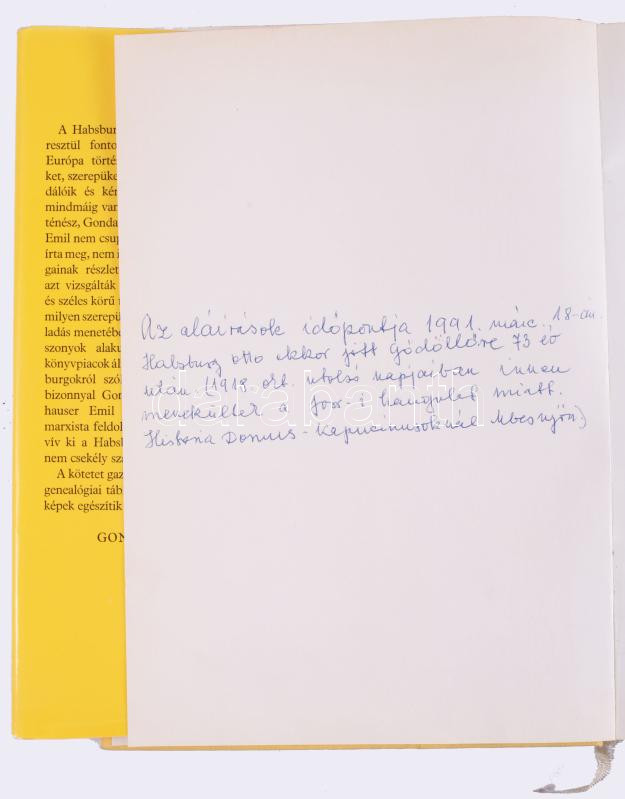 A Habsbur
resztül fonto
Európa törté
ket, szerepüke
dálóik és kér
mindmáig van
ténész, Gonda
Emil nem csup
írta meg, nem i
gainak részlet
azt vizsgálták
és széles körű
milyen szerepü
ladás menetébe
szonyok alaku
könyvpiacok ál
burgokról szó
bizonnyal Gon
hauser Emil
marxista feldol
vív ki a Habsb
nem csekély szá
A kötetet gaz
genealógiai táb
képek egészítik
GON
Az aláírások időpontja 1991. márc. 18-án.
Habsburg Otto ekkor jött Gödöllőre 73 év
után (1918. okt. utolsó napjaiban innen
menekültek a forr-i hangulat miatt.
Historia Domus - Kapucinusoknál Mbesnyőn)
darabanth